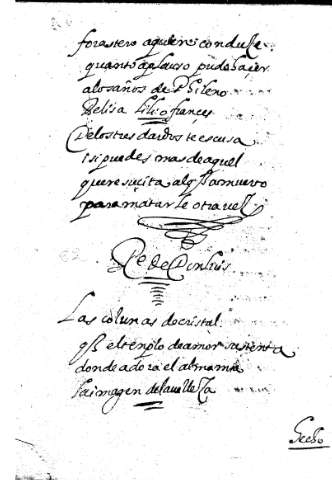 forastero a quien conduçe
quanto aplauso pudo haçer
a los años de Phileno
Belisa lilio françes
De los tres dardos te escusa
i si puedes mas de aquel
que resuçita al q̃ ha muerto
para matarle otra vez.
De Don Luis
Las colunas de cristal
q̃ el templo de amor sustenta
donde adora el alma mia
la imagen de la velleza